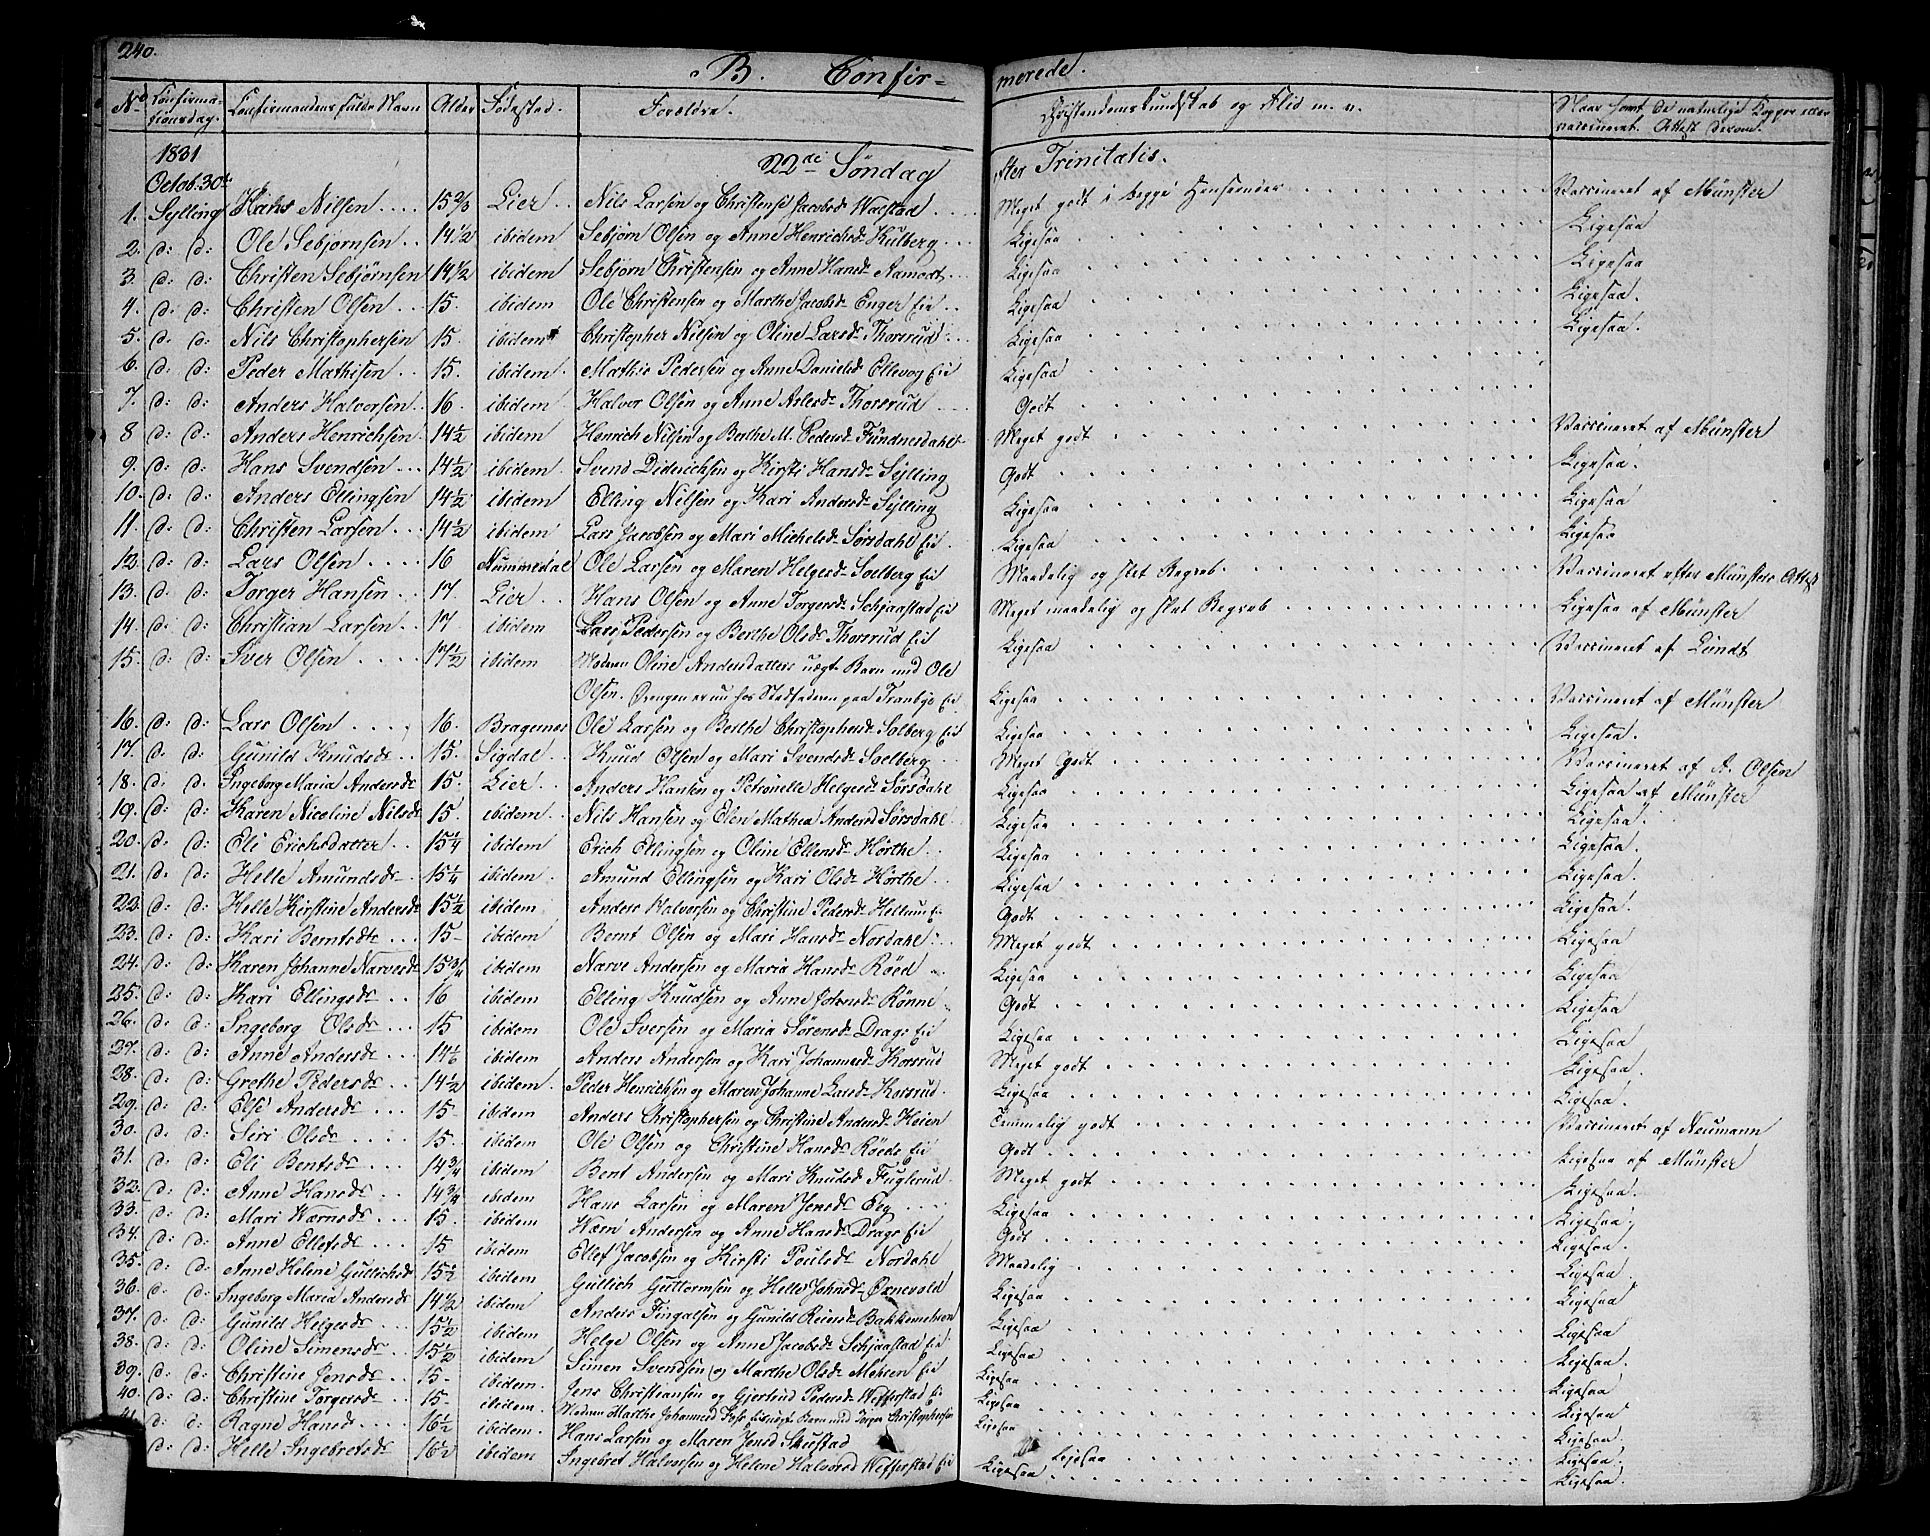 240.
B. Confir- merede.
No Confirma- tionsdag. Confirmandens fulde Navn Alder Fødestad. Forældre. Christendomskundskab og Flid m. v. Naar havt de naturlige Kopper eller vaccineret. Attest derom.
1831 22de Søndag efter Trinitatis.
Octob. 30te
1. Sylling Hans Nilsen 15 2/3 Lier Nils Larsen og Christense Jacobsd Wæstad Meget godt i begge Henseender Vaccineret af Münster
2. d: d: Ole Sebjørnsen 14 1/2 ibidem Sebjørn Olsen og Anne Henrichsd Kulberg Ligesaa Ligesaa
3. d: d: Christen Sebjørnsen 14 1/2 ibidem Sebjørn Christensen og Anne Hansd Aamodt Ligesaa Ligesaa
4. d: d: Christen Olsen 15. ibidem Ole Christensen og Marthe Jacobsd Enger Eie Ligesaa Ligesaa.
5. d: d: Nils Christophersen 15. ibidem Christopher Nilsen og Oline Larsd Thorsrud Ligesaa Ligesaa.
6. d: d: Peder Mathisen 15. ibidem Mathis Pedersen og Anne Danielsd Ellevog Eie Ligesaa
7. d: d: Anders Halvorsen 16 ibidem Halvor Olsen og Anne Aslesd Thorsrud Godt
8 d: d: Anders Henrichsen 14 1/2 ibidem Henrich Nilsen og Berthe M. Pedersd Fundnesdahl Meget godt Vaccineret af Münster
9. d: d: Hans Svendsen 14 1/2 ibidem Svend Diderichsen og Kirsti Hansd Sylling Godt Ligesaa.
10. d: d: Anders Ellingsen 14 1/2 ibidem Elling Nilsen og Kari Andersd Sylling Ligesaa Ligesaa
11. d: d: Christen Larsen 14 1/2 ibidem Lars Jacobsen og Mari Michelsd Sørsdahl Eie Ligesaa Ligesaa
12. d: d: Lars Olsen 16 Nummedal Ole Larsen og Maren Helgesd Soelberg Eie Maadelig og slet Begreb Vaccineret efter Münsters Attest
13. d: d: Torger Hansen 17. Lier Hans Olsen og Anne Torgersd Schjaastad Eie Meget maadelig og slet Begreb Ligesaa af Münster
14. d: d: Christian Larsen 17 ibidem Lars Pedersen og Berthe Olsd Thorsrud Eie Ligesaa Vaccineret af Lundt
15. d: d: Iver Olsen 17 1/2 ibidem Moderen Oline Andersdatters uægte Barn med Ole
Olsen. Drengen er nu hos Stedfaderen paa Tranbye Eie Ligesaa Vaccineret af Münster
16. d: d: Lars Olsen 16. Bragernes Ole Larsen og Berthe Christophersd Solberg Eie Ligesaa Ligesaa.
17. d: d: Gunild Knudsd 15. Sigdal Knud Olsen og Mari Svendsd Soelberg Meget Godt Vaccineret af A. Olsen
18. d: d: Ingeborg Maria Andersd 15. Lier Anders Hansen og Petronelle Helgesd Sørsdahl Ligesaa Ligesaa af Münster
19. d: d: Karen Nicoline Nilsd 15. ibidem Nils Hansen og Elen Mathea Andersd Sørsdahl Ligesaa Ligesaa.
20. d: d: Eli Erichsdatter 15 1/4 ibidem Erich Ellingsen og Oline Ellensd Hørthe Ligesaa Ligesaa.
21. d: d: Helle Amundsd 15 1/4 ibidem Amund Ellingsen og Kari Olsd Hørthe Ligesaa Ligesaa.
22. d: d: Helle Kirstine Andersd 15 1/2 ibidem Anders Halvorsen og Christine Pedersd Hellum Ei Godt Ligesaa.
23. d: d: Kari Berntsd 15 ibidem Bernt Olsen og Mari Hansd Nordahl Meget godt Ligesaa
24. d: d: Karen Johanne Narvesd 15 3/4 ibidem Narve Andersen og Maria Hansd Røed Ligesaa Ligesaa
25. d: d: Kari Ellingsd 16 ibidem Elling Knudsen og Anne Johnsd Rønne Godt Ligesaa
26. d: d: Ingeborg Olsd 15 ibidem Ole Iversen og Maria Sørensd Drags Eie Ligesaa Ligesaa
27. d: d: Anne Andersd 14 1/2 ibidem Anders Andersen og Kari Johannesd Korsrud Meget godt Ligesaa.
28. d: d: Grethe Pedersd 14 1/2 ibidem Peder Henrichsen og Maren Johanne Larsd Korsrud Ligesaa Ligesaa.
29. d: d: Else Andersd 15 ibidem Anders Christophersen og Christine Andersd Heien Temmelig godt Vaccineret af Neumann
30. d: d: Siri Olsd 15. ibidem Ole Olsen og Christine Hansd Røeds Eie Godt Ligesaa af Münster
31. d: d: Eli Bentsd 14 3/4 ibidem Bent Andersen og Mari Knudsd Fuglerud Meget godt Ligesaa.
32. d: d: Anne Hansd 14 3/4 ibidem Hans Larsen og Maren Jensd Eeg Ligesaa Ligesaa.
33. d: d: Mari Wærnsd 15. ibidem Wærn Andersen og Anne Hansd Drags Eie Godt Ligesaa.
34. d: d: Anne Ellefsd 15 ibidem Ellef Jacobsen og Kirsti Poulsd Nordahl Maadelig Ligesaa
35. d: d: Anne Helene Gullichsd 15 1/2 ibidem Gullich Guttormsen og Helle Johnsd Ovnevold Ligesaa Ligesaa
36. d: d: Ingeborg Maria Andersd 14 1/2 ibidem Anders Fingalsen og Gunild Reiersd Bakkemehren Ligesaa Ligesaa
37. d: d: Gunild Helgesd 15 1/2 ibidem Helge Olsen og Anne Jacobsd Schjaastad Eie Ligesaa Ligesaa.
38. d: d: Oline Simensd 15 1/2 ibidem Simen Svendsen og Marthe Olsd Mehren Eie Ligesaa Ligesaa
39. d: d: Christine Jensd 15 ibidem. Jens Christiansen og Gjertrud Pedersd Wefferstad Ei Ligesaa Ligesaa
40. d: d: Christine Torgersd 15 ibidem. Moderen Marthe Johannesd uægte Barn med Torger Christophersen Ligesaa Ligesaa.
41. d: d: Ragne Hansd 16 1/2 ibidem. Hans Larsen og Maren Jensd Skustad Ligesaa Ligesaa.
d: d: Helle Ingebretsd 16 1/2 ibidem Ingebret Halvorsen og Helene Halvorsd Wefferstad Eie Ligesaa Ligesaa.